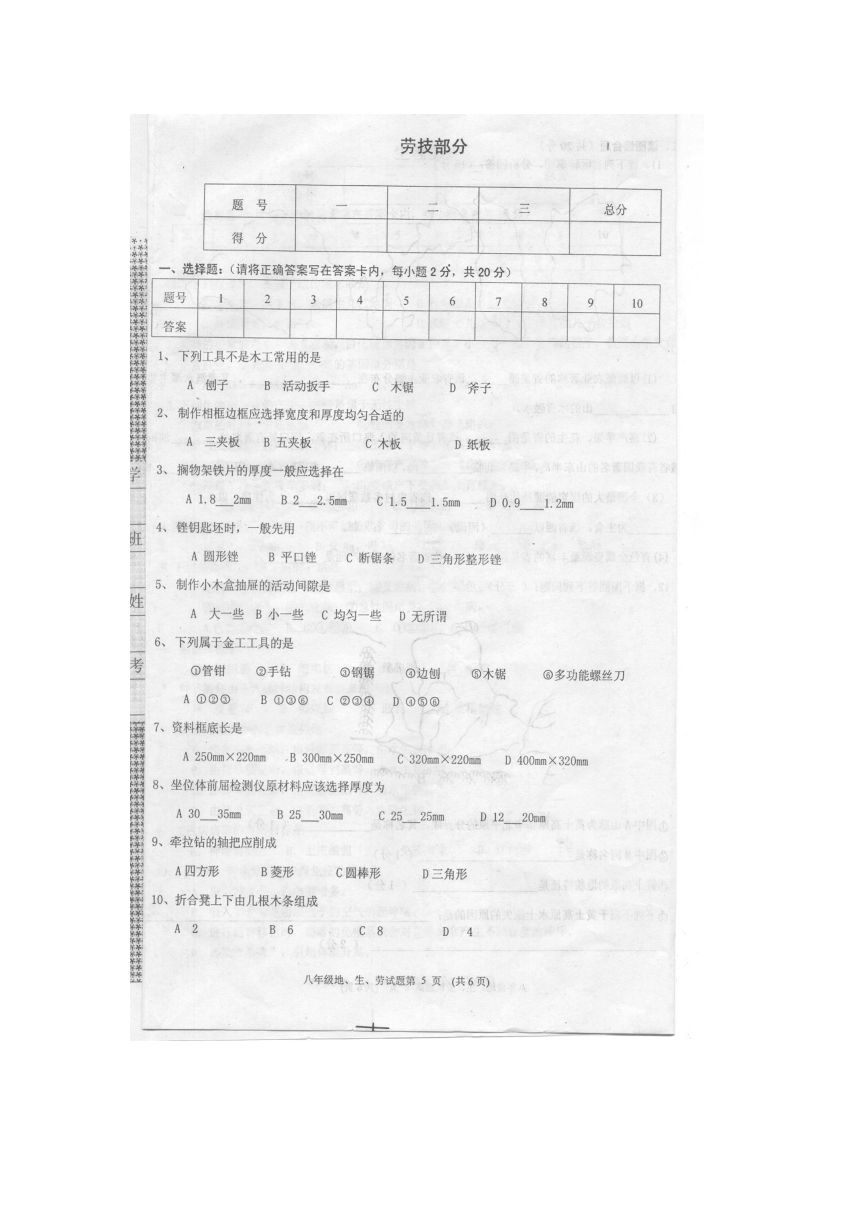 劳技部分
题 号 一 二 三 总分
得 分
一、选择题:(请将正确答案写在答案卡内,每小题2分,共20分)
题号 1 2 3 4 5 6 7 8 9 10
答案
1、下列工具不是木工常用的是
A 刨子 B 活动扳手 C 木锯 D 斧子
2、制作相框边框应选择宽度和厚度均匀合适的
A 三夹板 B 五夹板 C 木板 D 纸板
3、搁物架铁片的厚度一般应选择在
A 1.8__2mm B 2__2.5mm C 1.5___1.5mm D 0.9___1.2mm
4、锉钥匙坯时,一般先用
A 圆形锉 B 平口锉 C 断锯条 D 三角形整形锉
5、制作小木盒抽屉的活动间隙是
A 大一些 B 小一些 C 均匀一些 D 无所谓
6、下列属于金工工具的是
①管钳 ②手钻 ③钢锯 ④边刨 ⑤木锯 ⑥多功能螺丝刀
A ①②③ B ①③⑥ C ②③④ D ④⑤⑥
7、资料框底长是
A 250mm×220mm B 300mm×250mm C 320mm×220mm D 400mm×320mm
8、坐位体前屈检测仪原材料应该选择厚度为
A 30__35mm B 25__30mm C 25__25mm D 12__20mm
9、牵拉钻的轴把应削成
A四方形 B菱形 C圆棒形 D三角形
10、折合凳上下由几根木条组成
A 2 B 6 C 8 D 4
八年级地、生、劳试题第 5 页 (共6页)
学
班
姓
考